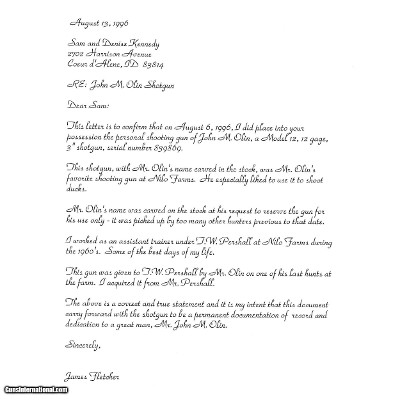 August 13, 1996
Sam and Denise Kennedy
2702 Harrison Avenue
Coeur d'Alene, ID 83814
RE: John M. Olin Shotgun
Dear Sam:
This letter is to confirm that on August 6, 1996, I did place into your
possession the personal shooting gun of John M. Olin, a Model 12, 12 gage,
3" shotgun, serial number 839869.
This shotgun, with Mr. Olin's name carved in the stock, was Mr. Olin's
favorite shooting gun at Nilo Farms. He especially liked to use it to shoot
ducks.
Mr. Olin's name was carved on the stock at his request to reserve the gun for
his use only - it was picked up by too many other hunters previous to that date.
I worked as an assistant trainer under T.W. Pershall at Nilo Farms during
the 1960's. Some of the best days of my life.
This gun was given to T.W. Pershall by Mr. Olin on one of his last hunts at
the farm. I acquired it from Mr. Pershall.
The above is a correct and true statement and it is my intent that this document
carry forward with the shotgun to be a permanent documentation of record and
dedication to a great man, Mr. John M. Olin.
Sincerely,
James Fletcher
GunsInternational.com